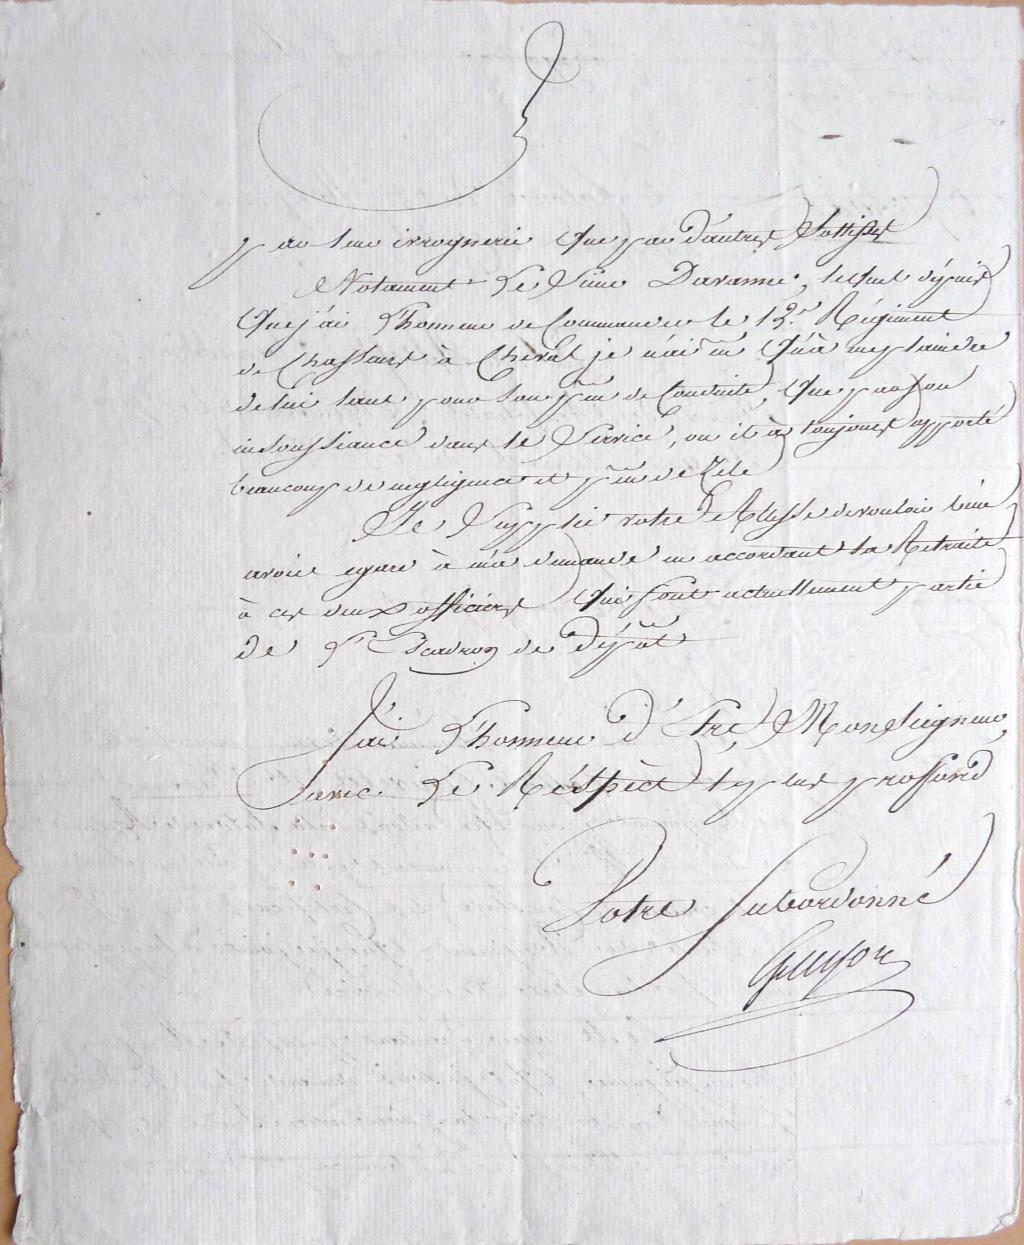 par leur ivrognerie que par d'autres sottises
Notament le Sieur Davanne, lequel depuis
que j'ai l'honneur de Commander le 12.e Régiment
de Chasseurs à Cheval je n'ai eu qu'à me plaindre
de lui tant pour son peu de Conduite, que par son
insoussiance dans le Service, ou il à toujours apporté
beaucoup de negligence et peu de Zele
Je Supplie votre Altesse de vouloir bien
avoir egard à ma demande en accordant la Retraite
à ces deux officiers qui font actuellement partie
de l'Escadron de dépôt
J'ai l'honneur d'Etre, Monseigneur,
avec le Réspéct le plus proffond
Votre Subordonné
Guyon